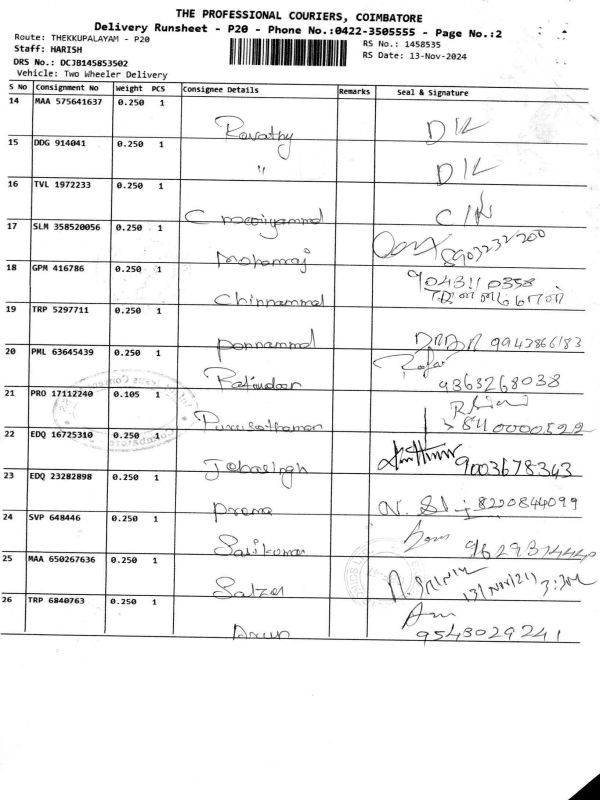 THE PROFESSIONAL COURIERS, COIMBATORE
Delivery Runsheet - P20 - Phone No.:0422-3505555 - Page No.:2
Route: THEKKUPALAYAM - P20
RS No.: 1458535
Staff: HARISH
RS Date: 13-Nov-2024
DRS No.: DCJB145853502
Vehicle: Two Wheeler Delivery
S No Consignment No Weight PCS Consignee Details Remarks Seal & Signature
14 MAA 575641637 0.250 1
Ravathy D/L
15 DDG 914041 0.250 1
" D/L
16 TVL 1972233 0.250 1
17 SLM 358520056 0.250 1
Mohanraj 8903232200
18 GPM 416786 0.250 1
Chinnammal 9043110358
19 TRP 5297711 0.250 1
ponnammal 9943866183
20 PML 63645439 0.250 1
9363268038
21 PRO 17112240 0.105 1
Purusothaman
22 EDQ 16725310 0.250 1
Jebasingh 9003678343
23 EDQ 23282898 0.250 1
prema 8220844099
24 SVP 648446 0.250 1
Sasikumar
25 MAA 650267636 0.250 1
Salzer
26 TRP 6840763 0.250 1
Arun 9543029241